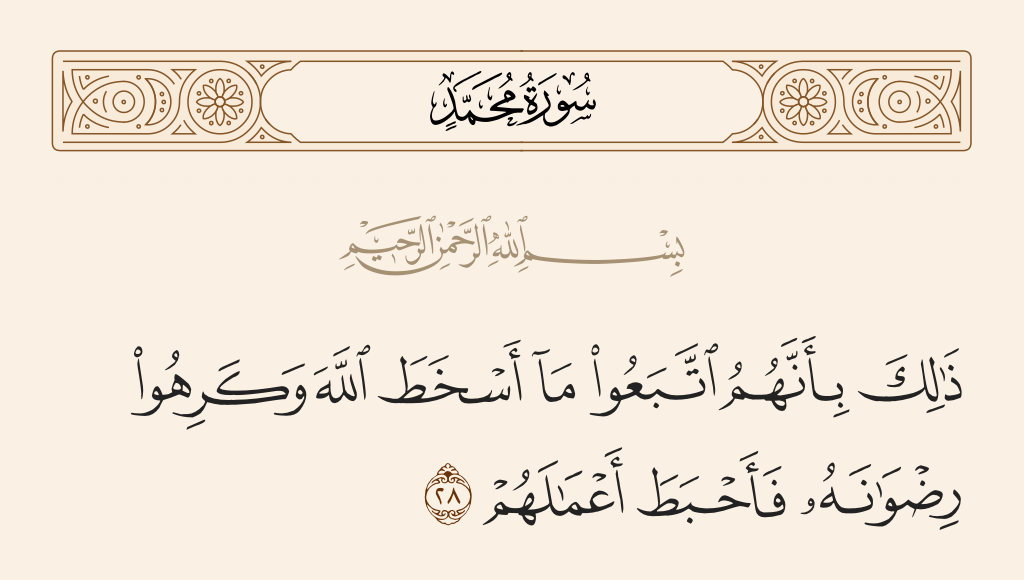 سُورَةُ مُحَمَّدٍ
بِسْمِ ٱللَّهِ ٱلرَّحْمَٰنِ ٱلرَّحِيمِ
ذَٰلِكَ بِأَنَّهُمُ ٱتَّبَعُوا۟ مَآ أَسْخَطَ ٱللَّهَ وَكَرِهُوا۟
رِضْوَٰنَهُۥ فَأَحْبَطَ أَعْمَٰلَهُمْ ٢٨